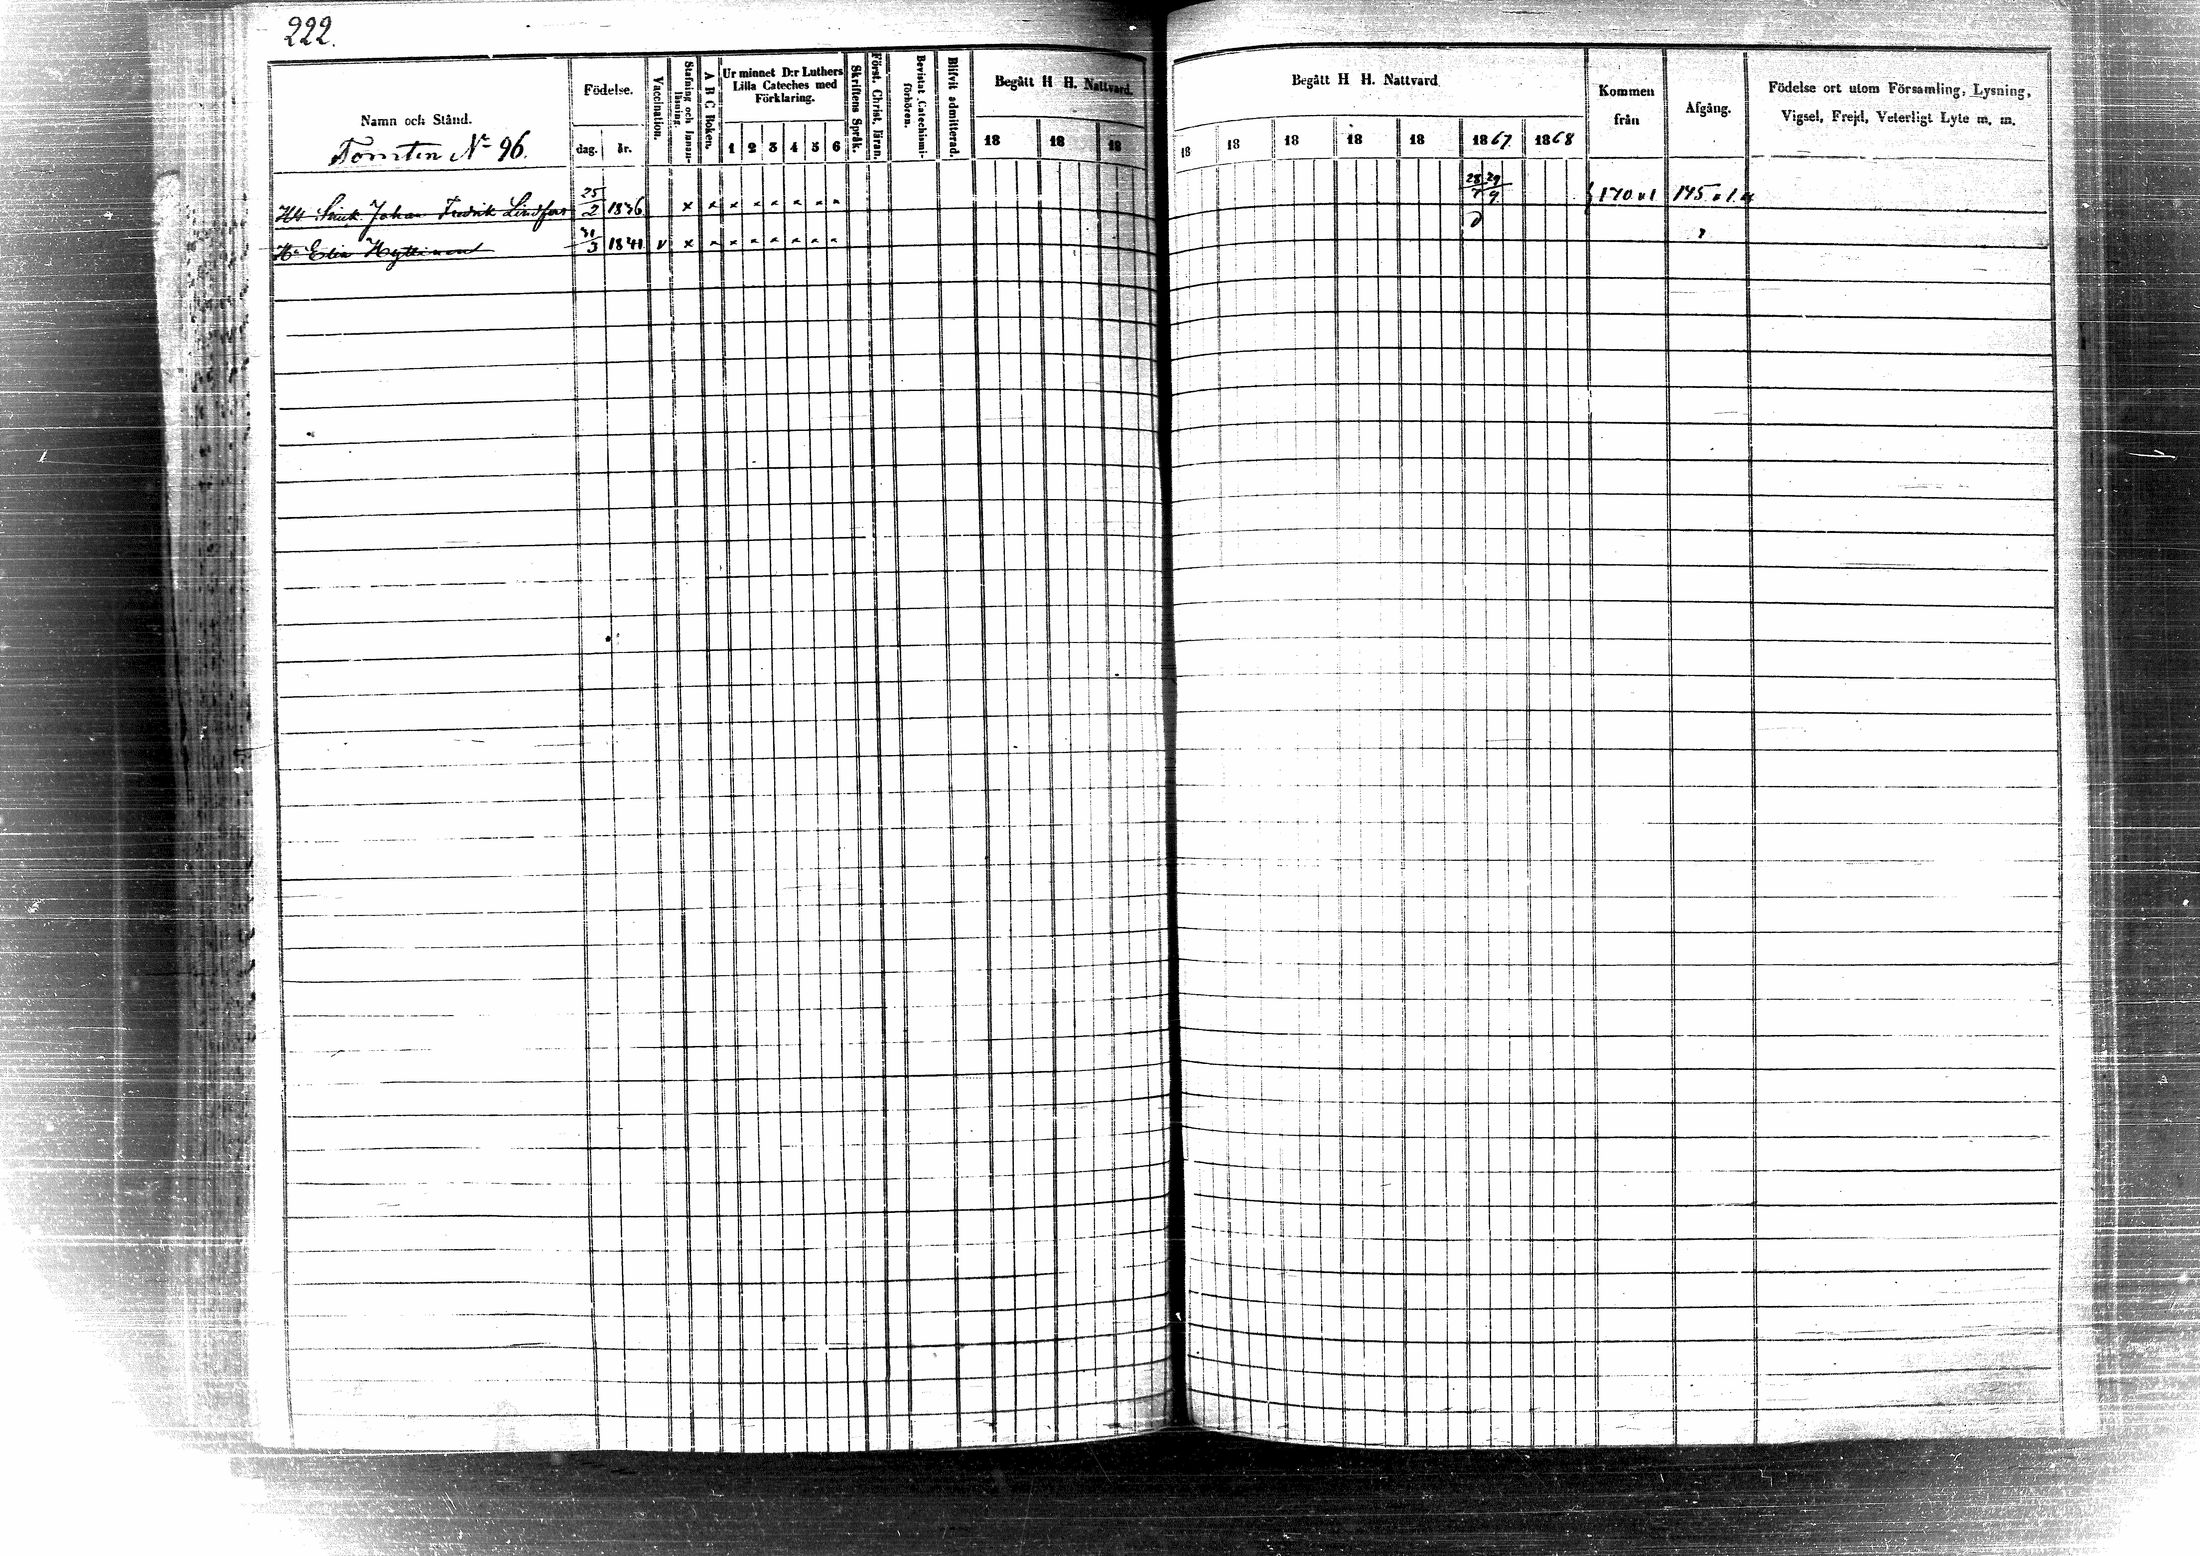 222.
Namn och Stånd.
Tomten No 96.
Födelse.
dag. år.
Vaccination.
Stafning och Innanläsning.
A B C Boken.
Ur minnet D:r Luthers
Lilla Cateches med
Förklaring.
1 2 3 4 5 6
Skriftens Språk.
Först. Christ. läran.
Bevistat Catechismi-
förhören.
Blifvit admitterad.
Begått H H. Nattvard.
18 18 18
Begått H H. Nattvard
18 18 18 18 18 1867 1868
Kommen
från
Afgång.
Födelse ort utom Församling, Lysning,
Vigsel, Frejd, Veterligt Lyte m. m.
Johan Fredrik Lindfors 25/2 1836 x 28/7 29/9 170 175
Hu Elin Hyttinen 31/3 1841 v x